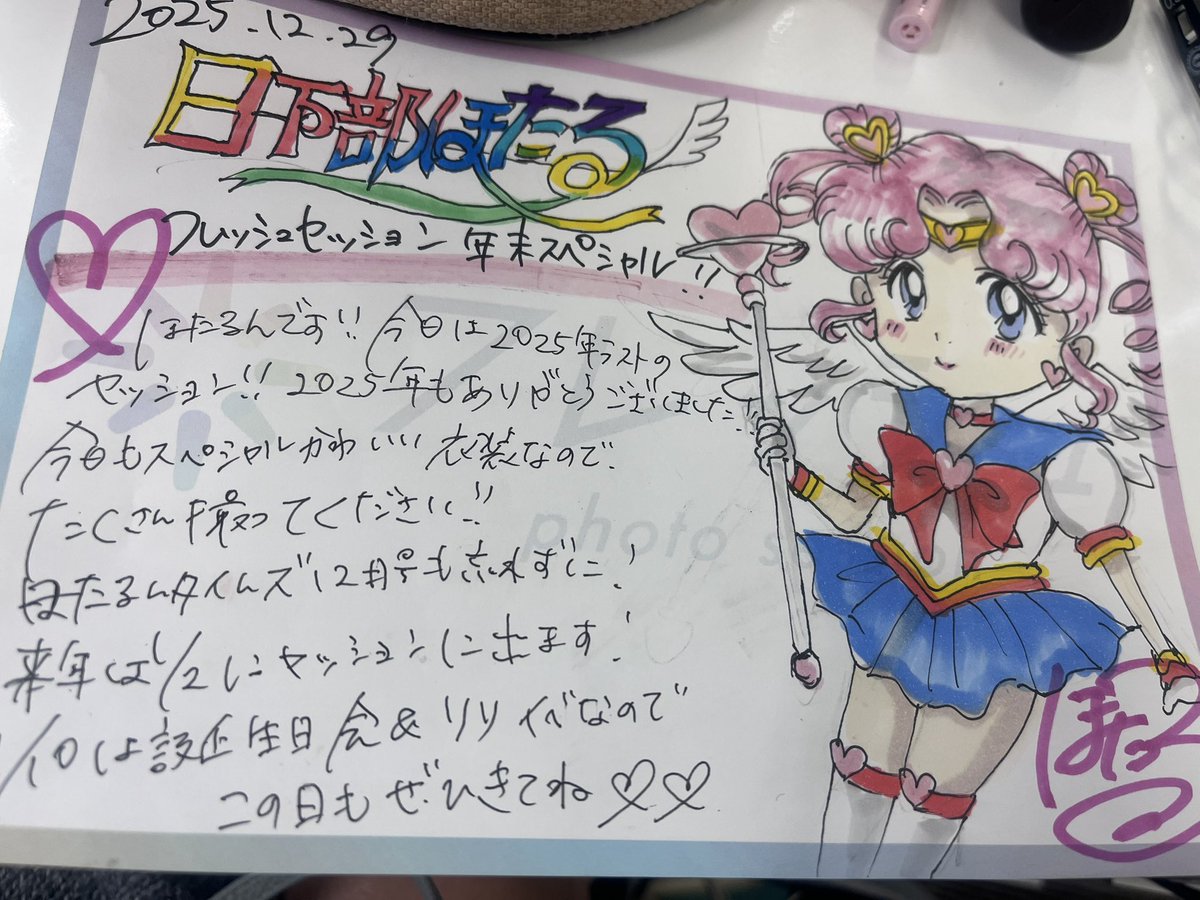 2025.12.29
日下部ほたる
フレッシュセッション 年末スペシャル!!
ほたるんです!! 今日は2025年ラストの
セッション!! 2025年もありがとうございました!!
今日もスペシャルかわいい衣装なので、
たくさん撮ってください!!
ほたるんタイムズ12月号も忘れずに!
来年は1/2にセッションに出ます!
1/10は 生日会&リリイベなので
この日もぜひきてね
photo s